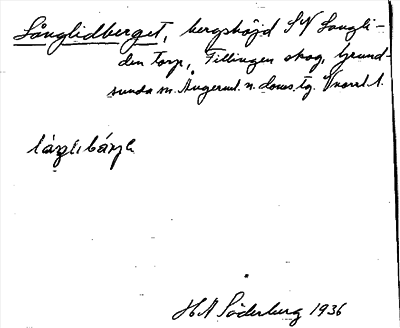 Långlidberget, bergshöjd SV Långli-
den torp, Fillingen skog, Grund-
sunda sn. Ångerml. n. doms. tg. Vnorrl. l.
H A Söderberg 1936